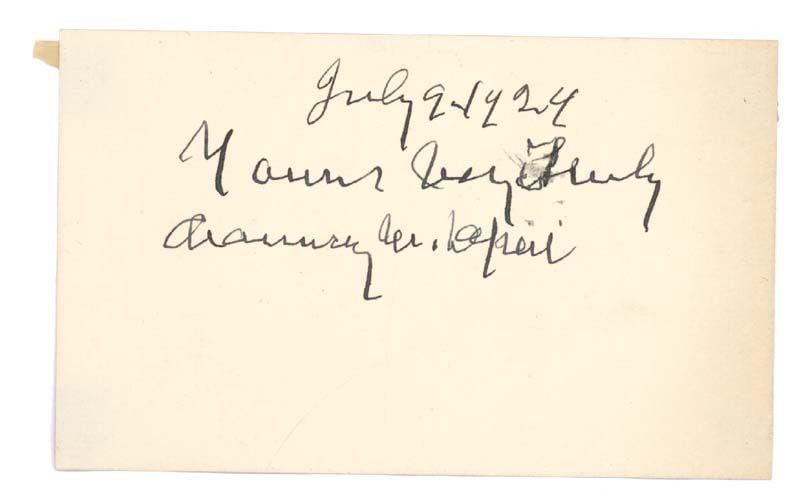 July 9-1924
Yours Very Truly
Chauncey M. Depew